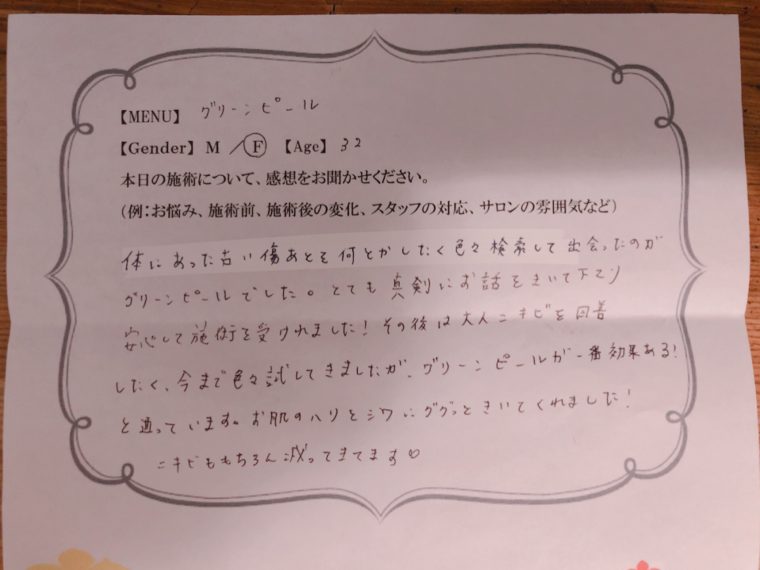 【MENU】 グリーンピール
【Gender】 M ／ F 【Age】 32
本日の施術について、感想をお聞かせください。
（例：お悩み、施術前、施術後の変化、スタッフの対応、サロンの雰囲気など）
体にあった古い傷あとを何とかしたく色々検索して出会ったのが
グリーンピールでした。とても真剣にお話をきいて下さり
安心して施術を受けれました！その後は大人ニキビを改善
したく、今まで色々試してきましたが、グリーンピールが一番効果ある！
と通っています。お肌のハリとシワにググっときいてくれました！
ニキビももちろん減ってきてます♡